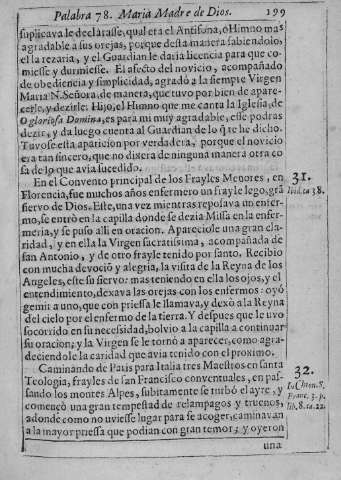 Palabra 78. Maria Madre de Dios. 199
suplicava le declarasse, qual era el Antifona, ò Himno mas
agradable a sus orejas, porque desta manera sabiendolo,
ella rezaria, y el Guardian le daria licencia para que co-
miesse y durmiesse. El afecto del novicio, acompañado
de obediencia y simplicidad, agradò a la siempre Virgen
Maria N. Señora, de manera, que tuvo por bien de apare-
cerle, y dezirle: Hijo, el Himno que me canta la Iglesia, de
O gloriosa Domina, es para mi muy agradable, esse podras
dezir, y da luego cuenta al Guardian de lo q̃ te he dicho.
Tuvose esta aparicion por verdadera, porque el novicio
era tan sincero, que no dixera de ninguna manera otra co
sa de lo que avia sucedido.
En el Convento principal de los Frayles Menores, en
Florencia, fue muchos años enfermero un frayle lego, grã
siervo de Dios. Este, una vez mientras reposava un enfer-
mo, se entrò en la capilla donde se dezia Missa en la enfer-
meria, y se puso alli en oracion. Apareciole una gran cla-
ridad, y en ella la Virgen sacratissima, acompañada de
san Antonio, y de otro frayle tenido por santo. Recibio
con mucha devociõ y alegria, la visita de la Reyna de los
Angeles, este su siervo: mas teniendo en ella los ojos, y el
entendimiento, dexava las orejas con los enfermos: oyò
gemir a uno, que con priessa le llamava, y dexò a la Reyna
del cielo por el enfermo de la tierra. Y despues que le uvo
socorrido en su necessidad, bolvio a la capilla a continuar
su oracion; y la Virgen se le tornò a aparecer, como agra-
deciendole la caridad que avia tenido con el proximo.
Caminando de Paris para Italia tres Maestros en santa
Teologia, frayles de san Francisco conventuales, en pas-
sando los montes Alpes, subitamente se turbò el ayre, y
començò una gran tempestad de relampagos y truenos,
adonde como no uviesse lugar para se acoger, caminavan
a la mayor priessa que podian con gran temor; y oyeron
una
31.
Ibid. ca 38.
32.
Franc. 3. p.
lib. 8. ca. 22.